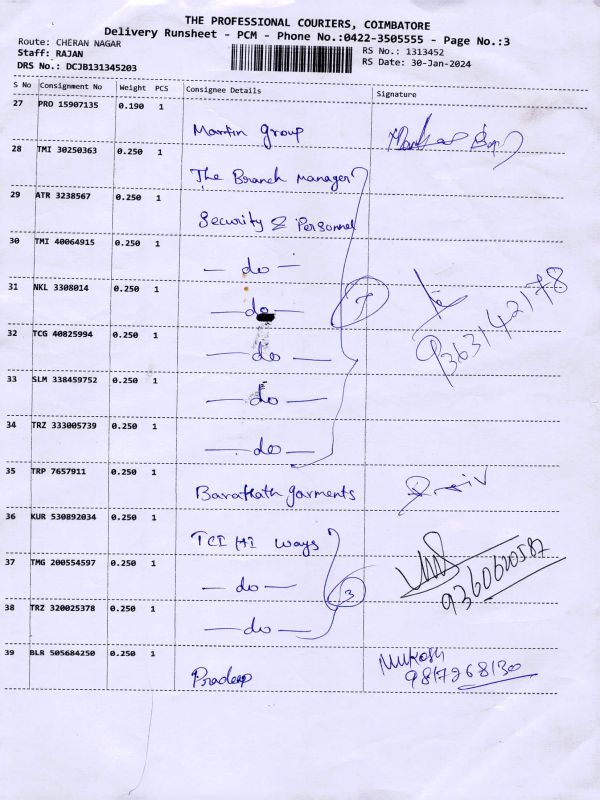 THE PROFESSIONAL COURIERS, COIMBATORE
Delivery Runsheet - PCM - Phone No.:0422-3505555 - Page No.:3
Route: CHERAN NAGAR
Staff: RAJAN
DRS No.: DCJB131345203
RS No.: 1313452
RS Date: 30-Jan-2024
S No Consignment No Weight PCS Consignee Details Signature
27 PRO 15907135 0.190 1
Martin Group
28 TMI 30250363 0.250 1
The Branch Manager
29 ATR 3238567 0.250 1
Security & Personnel
30 TMI 40064915 0.250 1
— do —
31 NKL 3308014 0.250 1
— do —
7
9363142178
32 TCG 40825994 0.250 1
— do —
33 SLM 338459752 0.250 1
— do —
34 TRZ 333005739 0.250 1
— do —
35 TRP 7657911 0.250 1
Barathath garments
36 KUR 530892034 0.250 1
TCI Hi ways
37 TMG 200554597 0.250 1
— do —
3
9360620587
38 TRZ 320025378 0.250 1
— do —
39 BLR 505684250 0.250 1
Pradeep
Mukosh
9817268130